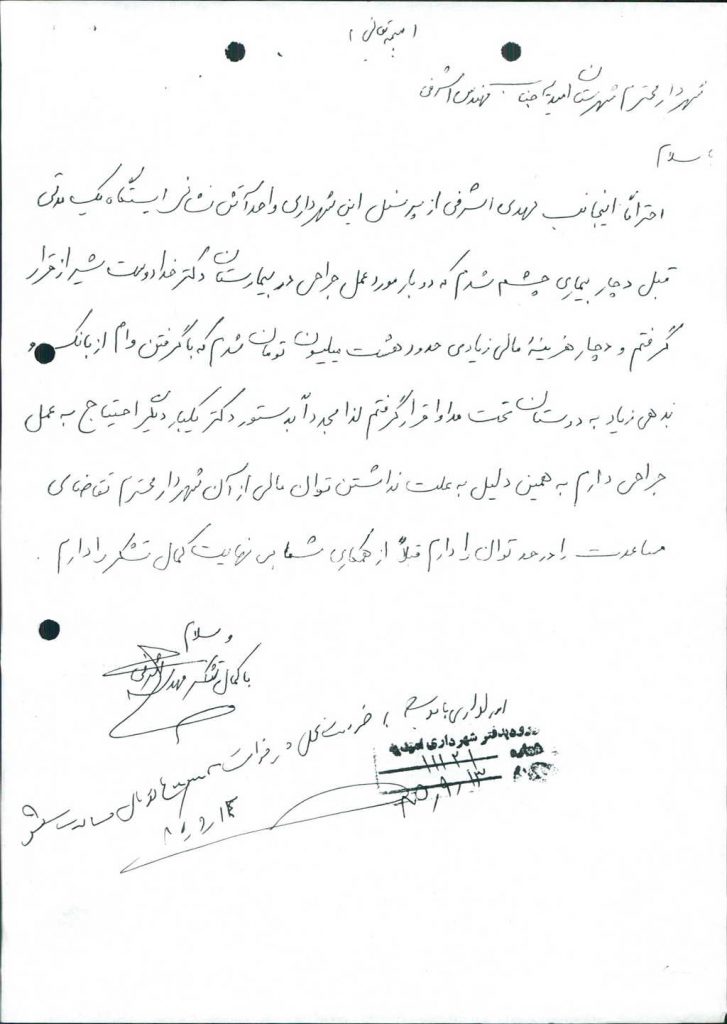 (بسمه تعالی)
شهردار محترم شهرستان امیدیه جناب مهندس اشرفی
با سلام
احتراماً اینجانب مهدی اشرفی از پرسنل این شهرداری واحد آتش نشانی ایستگاه یک مدتی
قبل دچار بیماری چشم شدم که دو بار مورد عمل جراحی در بیمارستان دکتر خدادوست شیراز قرار
گرفتم و دچار هزینهٔ مالی زیادی حدود هشت میلیون تومان شدم که با گرفتن وام از بانک و
بدهی زیاد به دوستان تحت مداوا قرار گرفتم لذا مجدداً بدستور دکتر یکبار دیگر احتیاج به عمل
جراحی دارم به همین دلیل به علت نداشتن توان مالی از آن شهردار محترم تقاضای
مساعدت را در حد توان را دارم قبلاً از همکاری شما بی نهایت کمال تشکر را دارم.
و سلام
با کمال تشکر مهدی اشرفی
امور اداری با توجه به ضرورت عمل در
ورود بدفتر شهرداری امیدیه
شماره ۱۱۱۲۱
۸۵,۹,۱۳